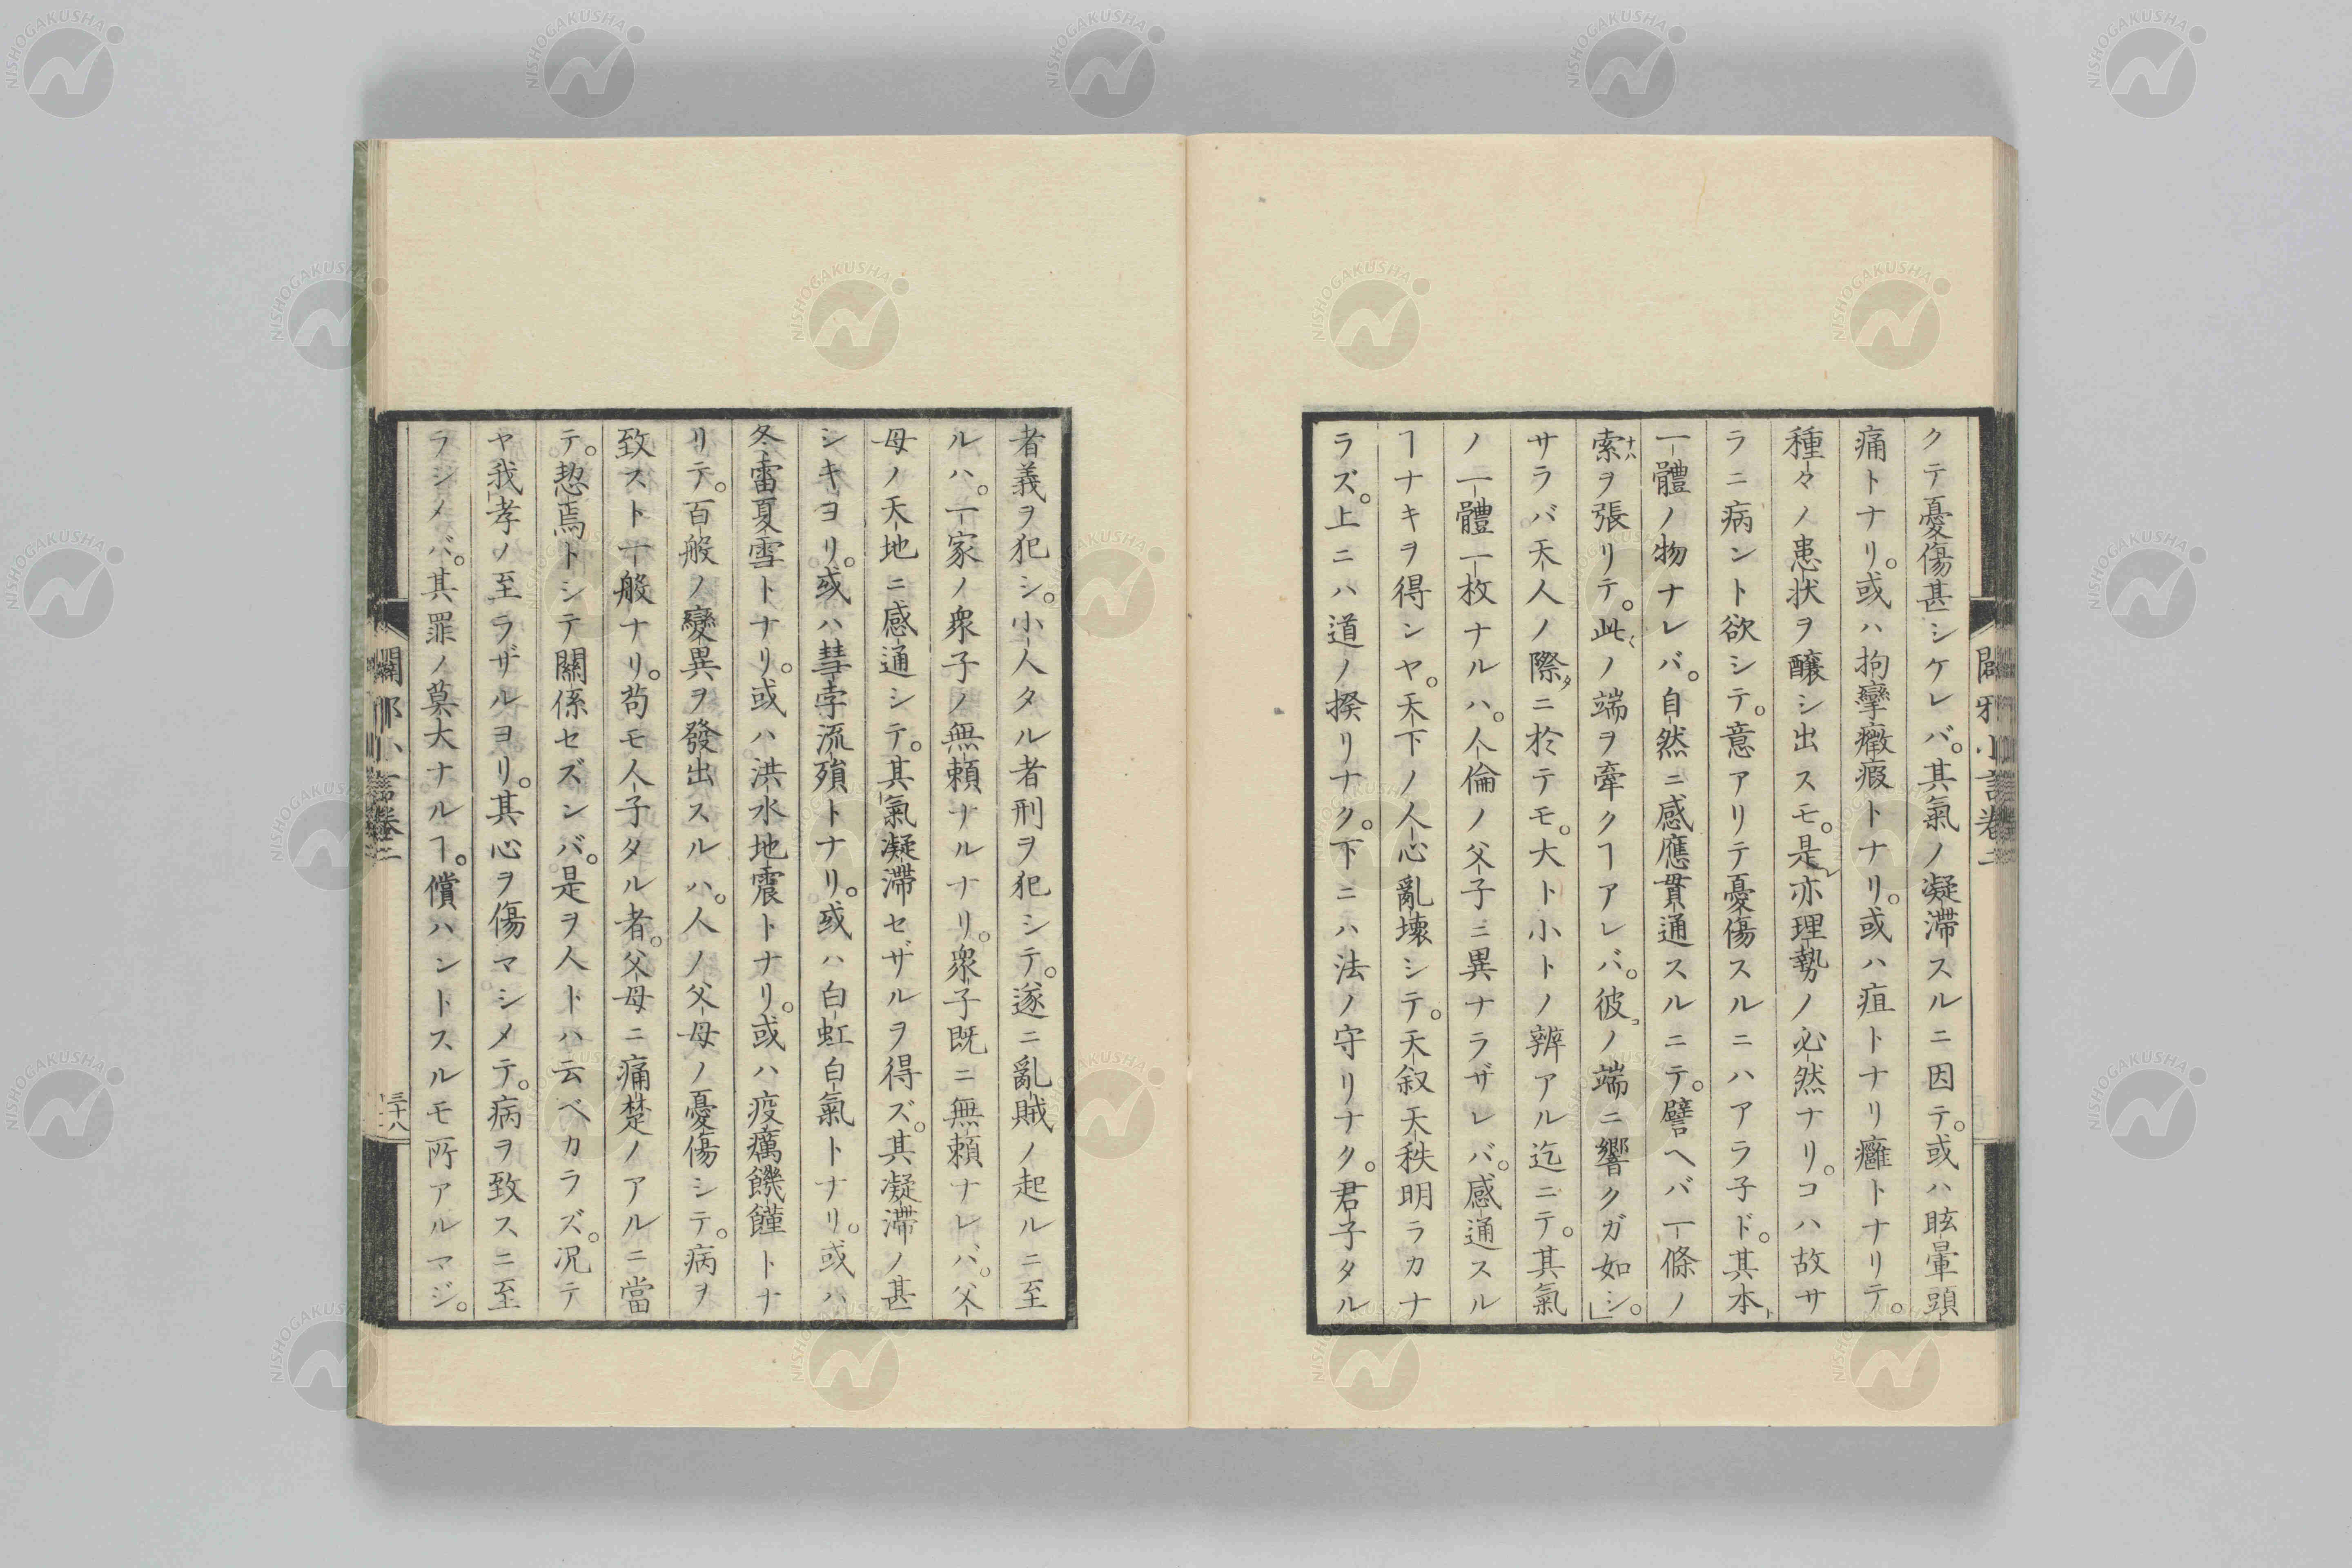 クテ憂傷甚シケレバ。其氣ノ凝滯スルニ因テ。或ハ眩暈頭
痛トナリ。或ハ拘攣癥瘕トナリ。或ハ疽トナリ癰トナリテ。
種々ノ患状ヲ醸シ出スモ。是レ亦理勢ノ必然ナリ。コハ故サ
ラニ病ント欲シテ。意アリテ憂傷スルニハアラ子ド。其本ト
一體ノ物ナレバ。自然ニ感應貫通スルニテ。譬ヘバ一條ノ
索ナハヲ張リテ。此くノ端ヲ牽クヿアレバ。彼コノ端ニ響クガ如シ。」
サラバ天人ノ際タニ於テモ。大ト小トノ辨アル迄ニテ。其氣
ノ一體一枚ナルハ。人倫ノ父子ニ異ナラザレバ。感通スル
ヿナキヲ得ンヤ。天下ノ人心亂壞シテ。天叙天秩明ラカナ
ラズ。上ニハ道ノ揆リナク。下ニハ法ノ守リナク。君子タル
者義ヲ犯シ。小人タル者刑ヲ犯シテ。遂ニ亂賊ノ起ルニ至
ルハ。一家ノ衆子ノ無頼ナルナリ。衆子既ニ無頼ナレバ。父
母ノ天地ニ感通シテ。其氣凝滯セザルヲ得ズ。其凝滯ノ甚
シキヨリ。或ハ彗孛流隕トナリ。或ハ白虹白氣トナリ。或ハ
冬雷夏雪トナリ。或ハ洪水地震トナリ。或ハ疫癘饑饉トナ
リテ。百般ノ變異ヲ發出スルハ。人ノ父母ノ憂傷シテ。病ヲ
致スト一般ナリ。苟モ人子タル者。父母ニ痛楚ノアルニ當
テ。恝焉トシテ關係セズンバ。是ヲ人トハ云ベカラズ。况テ
ヤ我孝ノ至ラザルヨリ。其心ヲ傷マシメテ。病ヲ致スニ至
ラシメバ。其罪ノ莫大ナルヿ。償ハントスルモ所アルマジ。
三十八
NISHOGAKUSHA